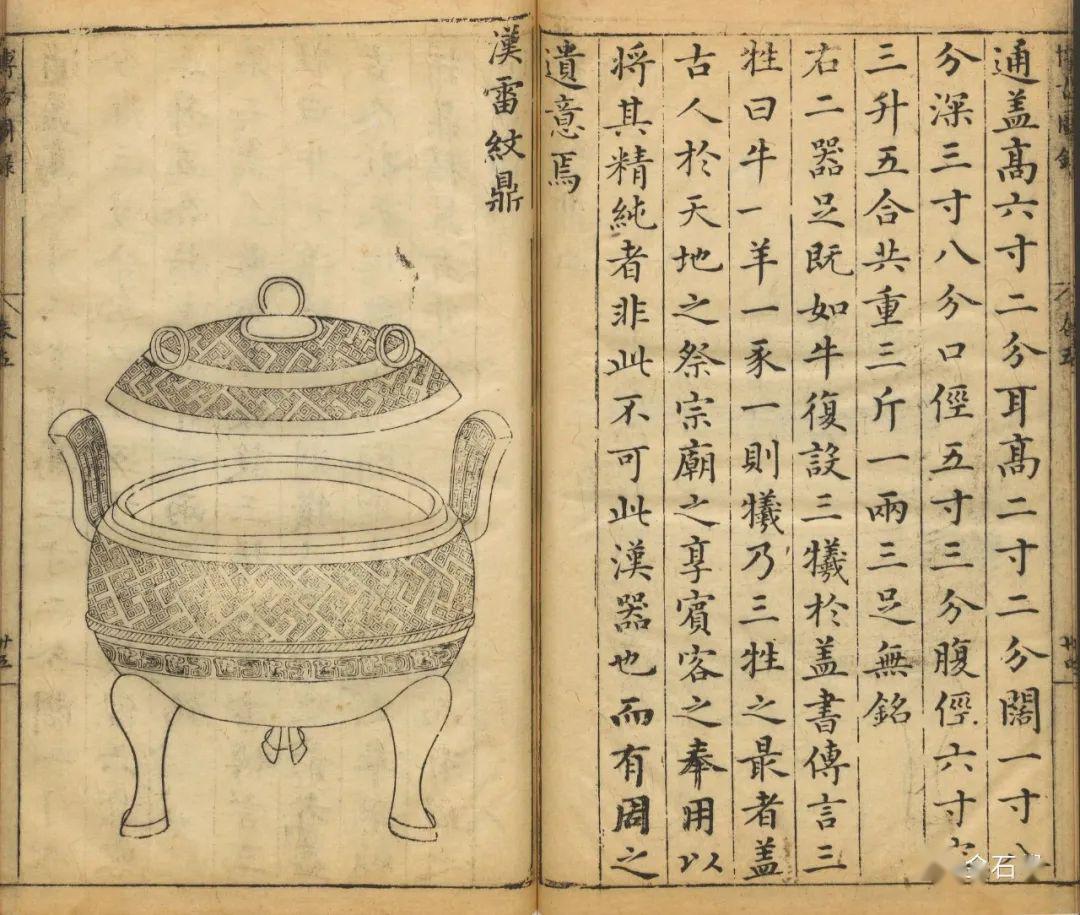 通盖髙六寸二分耳髙二寸二分闊一寸八
分深三寸八分口徑五寸三分腹徑六寸容
三升五合共重三斤一兩三足無銘
右二器足既如牛復設三犧於盖書傳言三
牲曰牛一羊一豕一則犧乃三牲之最者盖
古人於天地之祭宗廟之享賓客之奉用以
將其精純者非此不可此漢器也而有周之
遺意焉
漢雷紋鼎
博古圖錄
卷五
廿五
卷五
廿四
金石